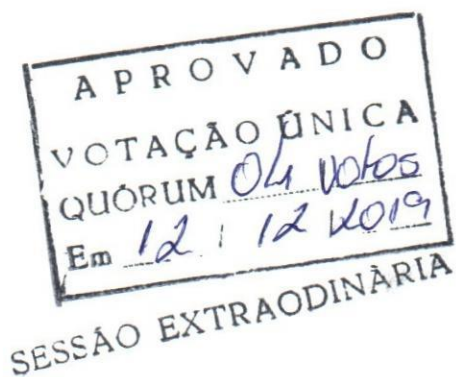 APROVADO
VOTAÇÃO ÚNICA
QUÓRUM 04 votos
Em 12 / 12 2019
SESSÃO EXTRAODINÁRIA